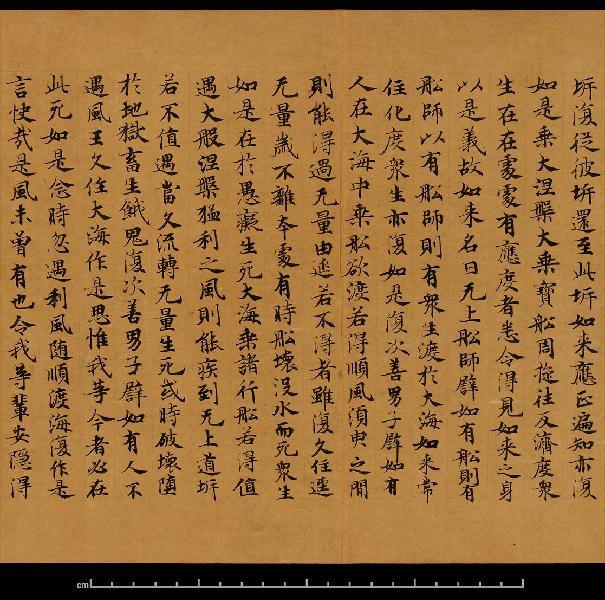 坼復從彼坼還至此坼如来應正遍知亦復
如是乗大涅槃大乗寳舩周旋往反濟度衆
生在在處處有應度者悉令得見如来之身
以是義故如来名曰无上舩師譬如有舩則有
舩師以有舩師則有衆生渡於大海如来常
住化度衆生亦復如是復次善男子譬如有
人在大海中乗舩欲渡若得順風須臾之間
則能得過无量由延若不得者雖復久住逕
无量歳不離本處有時舩壊没水而死衆生
如是在於愚癡生死大海乗諸行舩若得值
遇大般涅槃猛利之風則能疾到无上道坼
若不值遇當久流轉无量生死或時破壊墮
於地獄畜生餓鬼復次善男子譬如有人不
遇風王久住大海作是思惟我等今者必在
此死如是念時忽遇利風随順渡海復作是
言快哉是風未曽有也令我等輩安隠得
cm